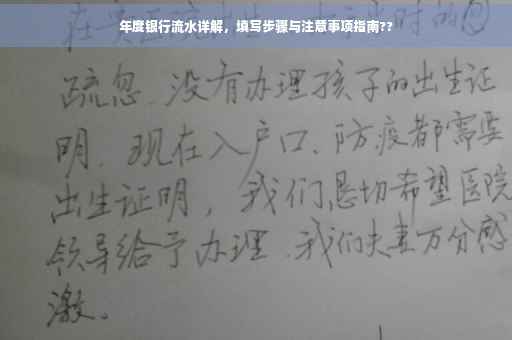 年度银行流水详解，填写步骤与注意事项指南??
疏忽.没有办理孩子的出生证
明.现在入户口、防疫都需要
出生证明，我们恳切希望医院
领导给予办理.我们夫妻万分感
激。